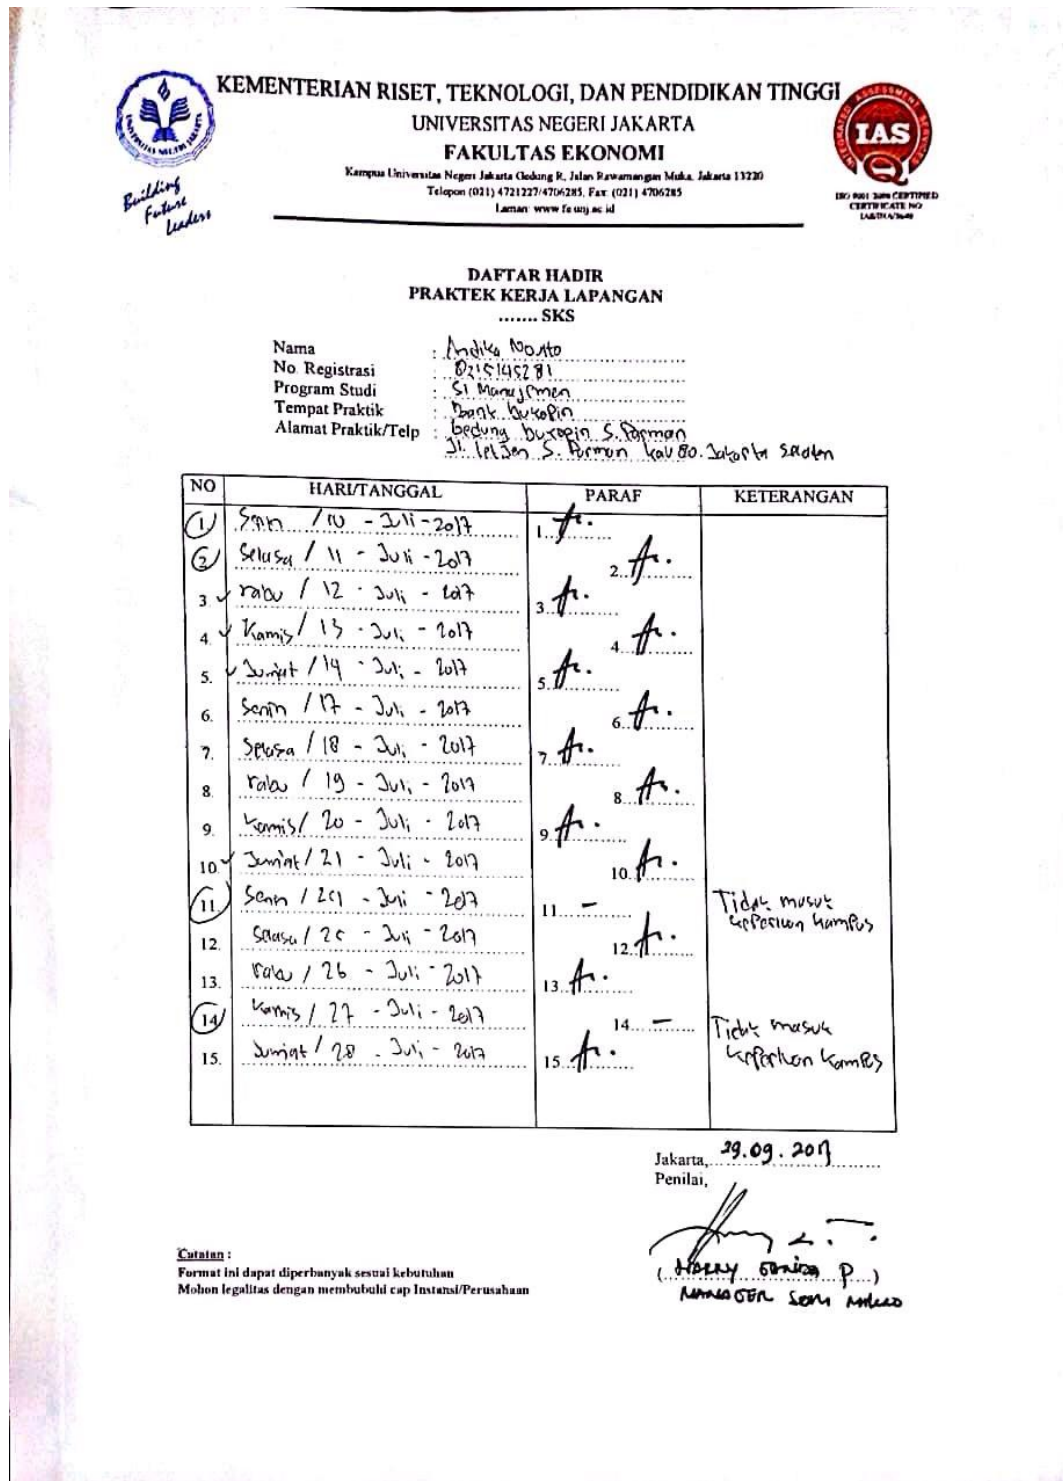 KEMENTERIAN RISET, TEKNOLOGI, DAN PENDIDIKAN TINGGI
UNIVERSITAS NEGERI JAKARTA
FAKULTAS EKONOMI
Kampus Universitas Negeri Jakarta Gedung R, Jalan Rawamangun Muka, Jakarta 13220
Telepon (021) 4721227/4706285, Fax: (021) 4706285
Laman: www.fe.unj.ac.id
Building
Future
Leaders
IAS
ISO 9001:2008 CERTIFIED
CERTIFICATE NO
DAFTAR HADIR
PRAKTEK KERJA LAPANGAN
....... SKS
Nama : Andika
No. Registrasi : 8215145281
Program Studi : S1 Manajemen
Tempat Praktik : Bank bukopin
Alamat Praktik/Telp : Gedung bukopin S. Parman
Jl. Letjen S. Parman kav 80. Jakarta
NO HARI/TANGGAL PARAF KETERANGAN
1 Senin / 10 - Juli - 2017 1.
2 Selasa / 11 - Juli - 2017 2.
3. rabu / 12 - Juli - 2017 3.
4. Kamis / 13 - Juli - 2017 4.
5. Jumat / 14 - Juli - 2017 5.
6. Senin / 17 - Juli - 2017 6.
7. Selasa / 18 - Juli - 2017 7.
8. rabu / 19 - Juli - 2017 8.
9. Kamis / 20 - Juli - 2017 9.
10. Jum'at / 21 - Juli - 2017 10.
11. Senin / 24 - Juli - 2017 11. - Tidak masuk
keperluan kampus
12. Selasa / 25 - Juli - 2017 12.
13. rabu / 26 - Juli - 2017 13.
14 Kamis / 27 - Juli - 2017 14. - Tidak masuk
keperluan kampus
15. Jumat / 28 - Juli - 2017 15.
Jakarta, 29.09.2017
Penilai,
(HARRY P)
MANAGER
Catatan :
Format ini dapat diperbanyak sesuai kebutuhan
Mohon legalitas dengan membubuhi cap Instansi/Perusahaan